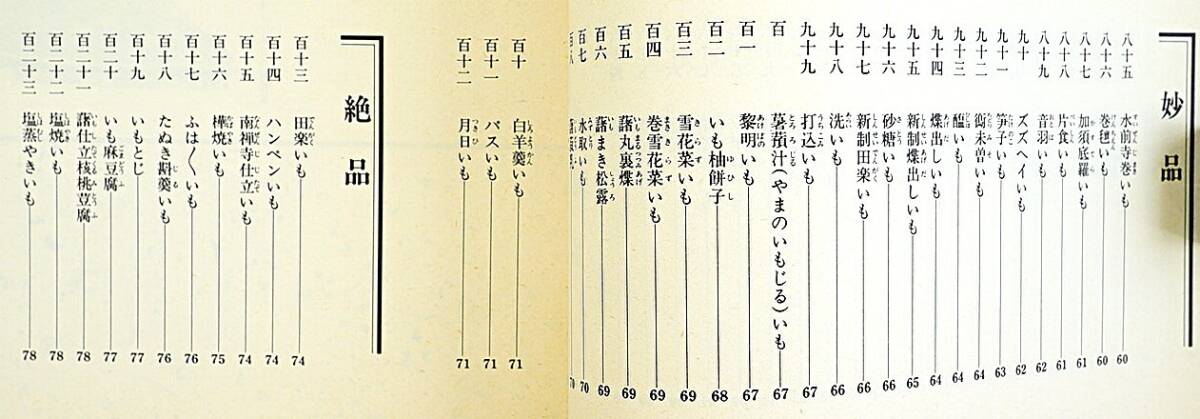 妙品
八十五 水前寺巻いも 60
八十六 巻毡いも 60
八十七 加須底羅いも 61
八十八 片食いも 61
八十九 音羽いも 62
九十 ズズヘイいも 62
九十一 笋子いも 63
九十二 衛未曽いも 64
九十三 醢いも 64
九十四 煠出しいも 64
九十五 新制煠出しいも 65
九十六 砂糖いも 66
九十七 新制田楽いも 66
九十八 洗いも 66
九十九 打込いも 67
百 薯蕷汁(やまのいもじる)いも 67
百一 黎明いも 67
百二 いも柚餅子 68
百三 雪花菜いも 69
百四 巻雪花菜いも 69
百五 藷丸裏煠 69
百六 藷まき松露 69
百七 水取いも 70
百八 70
百十 白羊羹いも 71
百十一 バスいも 71
百十二 月日いも 71
絶品
百十三 田楽いも 74
百十四 ハンペンいも 74
百十五 南禅寺仕立いも 74
百十六 樺焼いも 75
百十七 ふは〱いも 76
百十八 たぬき斟羹いも 76
百十九 いもとじ 77
百二十 いも麻豆腐 77
百二十一 藷仕立枝桃豆腐 78
百二十二 塩焼いも 78
百二十三 塩蒸やきいも 78